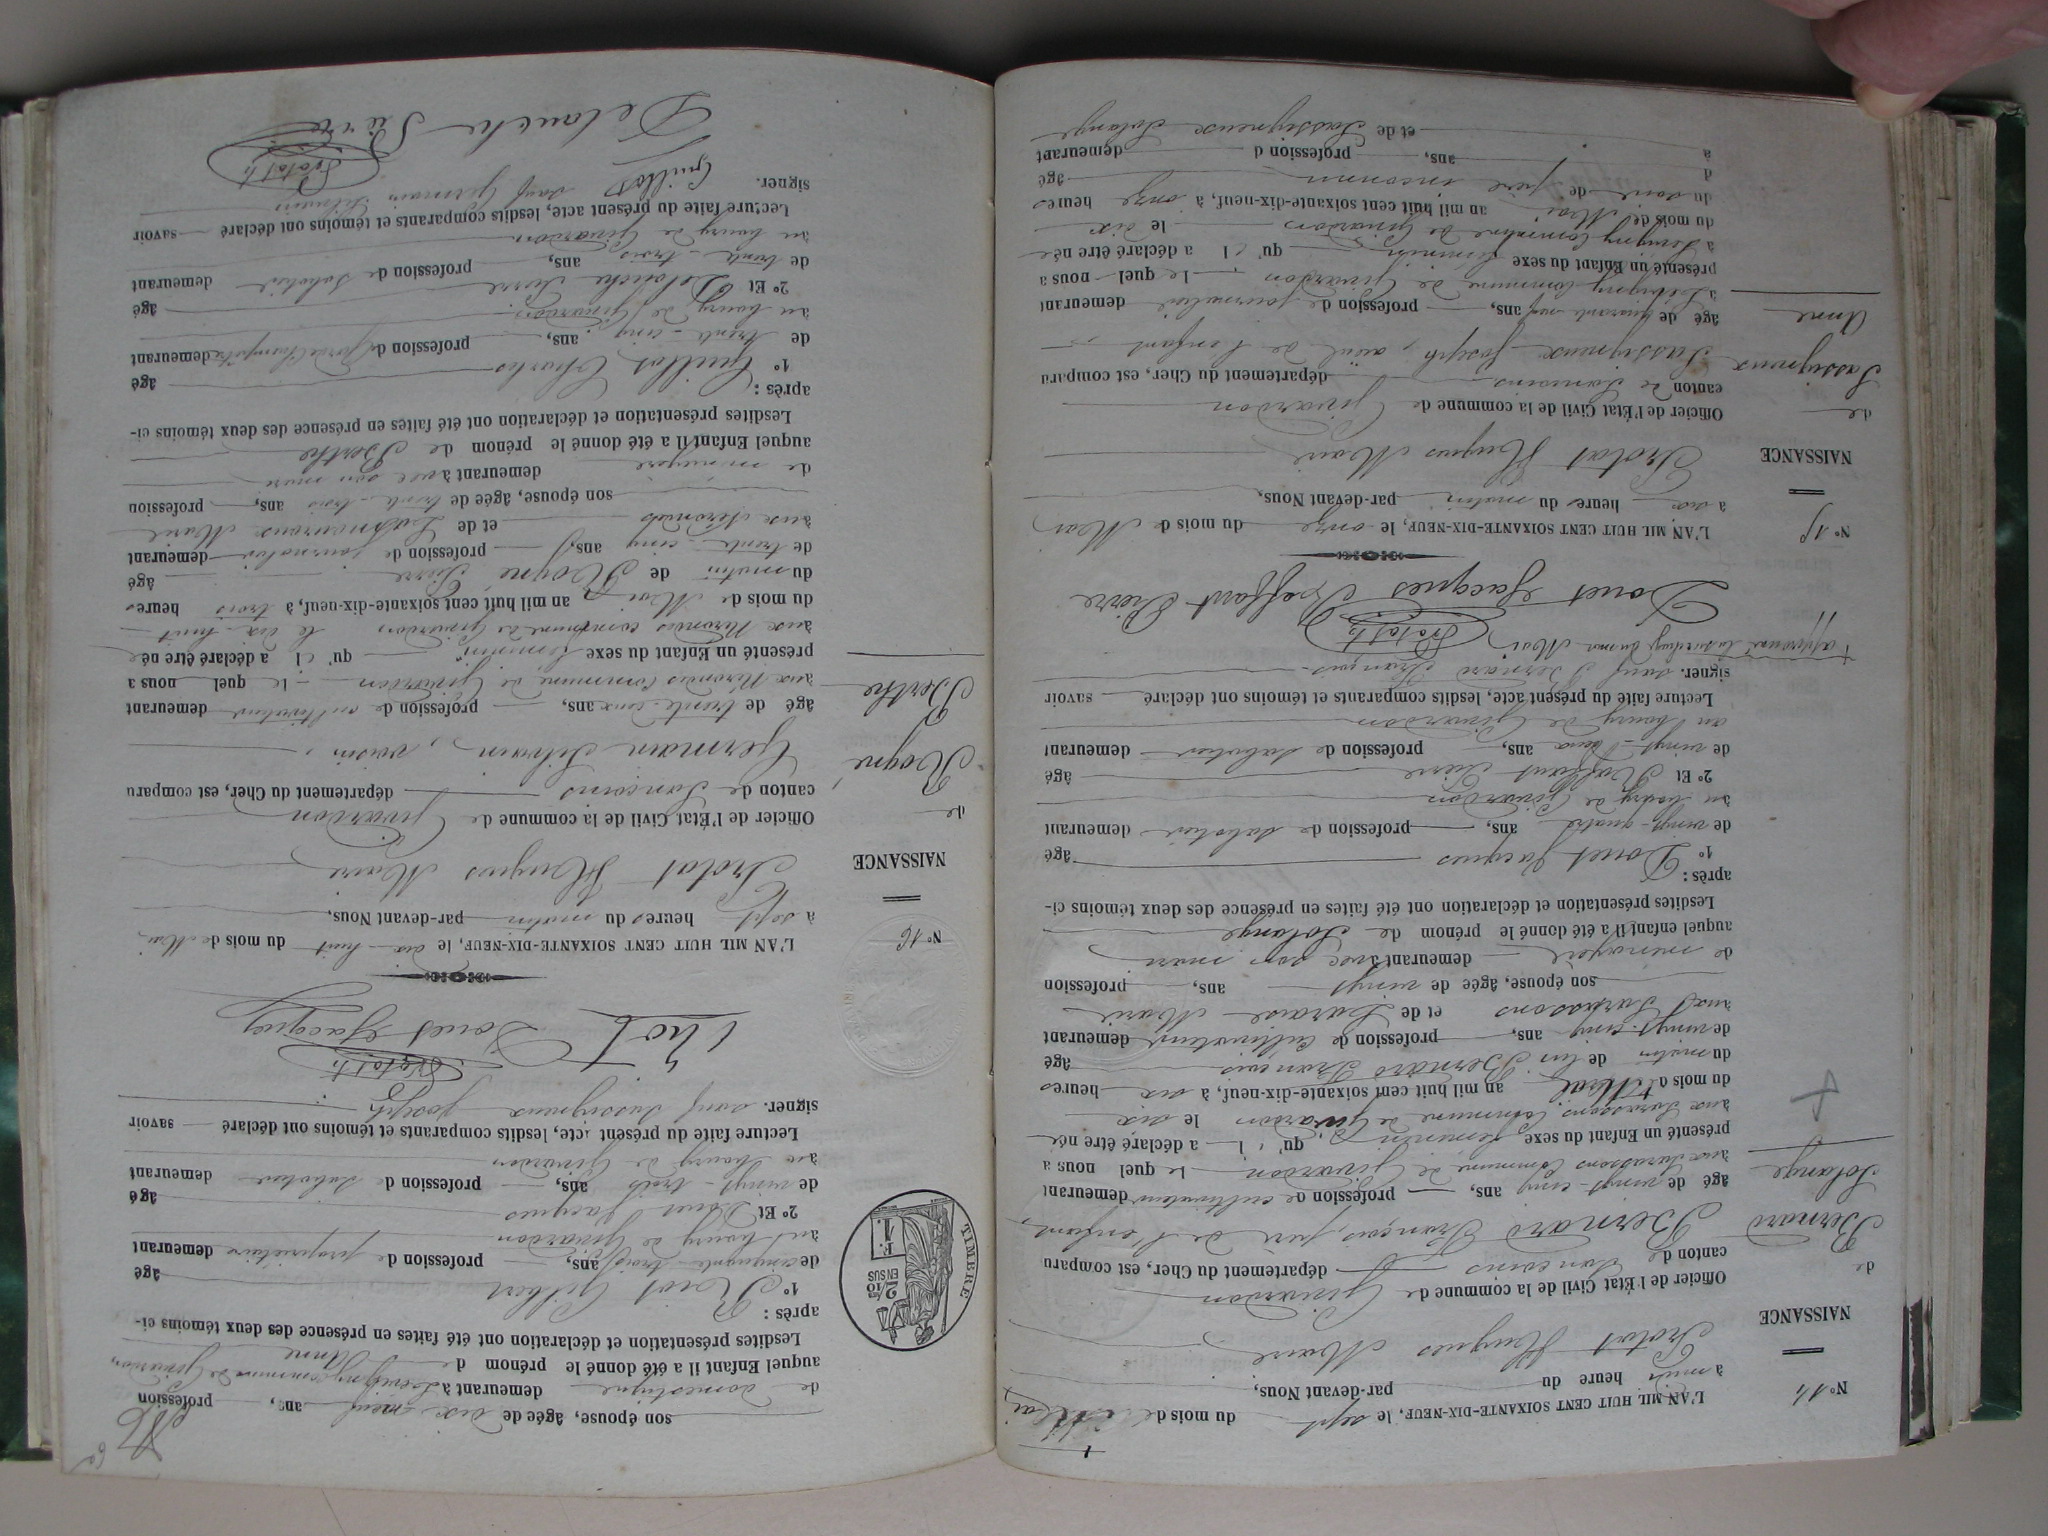 N° 14
NAISSANCE
de
Bernard
Solange
L'AN MIL HUIT CENT SOIXANTE-DIX-NEUF, le sept du mois de Mai
à midi heure du par-devant Nous,
Trotat Hugues Maire
Officier de l'État Civil de la commune de Givardon
canton de Sancoins département du Cher, est comparu
Bernard François, père de l'enfant,
âgé de vingt-cinq ans, profession de cultivateur demeurant
aux commune de Givardon le quel nous a
présenté un Enfant du sexe féminin qu'il a déclaré être née
aux commune de Givardon le six
du mois de Mai an mil huit cent soixante-dix-neuf, à six heures
du matin de lui Bernard François âgé
de vingt-cinq ans, profession de cultivateur demeurant
aux et de Marie
son épouse, âgée de vingt ans, profession
de ménagère demeurant avec son mari
auquel enfant il a été donné le prénom de Solange
Lesdites présentation et déclaration ont été faites en présence des deux témoins ci-
après :
1° Douet Jacques âgé
de vingt-quatre ans, profession de sabotier demeurant
au bourg de Givardon
2° Et Raffant Pierre âgé
de vingt-deux ans, profession de sabotier demeurant
au bourg de Givardon
Lecture faite du présent acte, lesdits comparants et témoins ont déclaré savoir
signer. sauf Bernard François
+ approuvé la surcharge du mot Mai
Trotat h
Douet Jacques Raffant Pierre
N° 15
NAISSANCE
de
Lassigneux
Anne
L'AN MIL HUIT CENT SOIXANTE-DIX-NEUF, le onze du mois de Mai
à six heures du matin par-devant Nous,
Trotat Hugues Maire
Officier de l'État Civil de la commune de Givardon
canton de Sancoins département du Cher, est comparu
Lassigneux Joseph, aïeul de l'enfant,
âgé de quarante-neuf ans, profession de journalier demeurant
à commune de Givardon le quel nous a
présenté un Enfant du sexe féminin qu'il a déclaré être née
à commune de Givardon le dix
du mois de Mai an mil huit cent soixante-dix-neuf, à onze heures
du soir de père inconnu
d âgé
à ans, profession d demeurant
et de Lassigneux Solange
son épouse, âgée de dix-neuf ans, profession
de domestique demeurant à commune de Givardon,
auquel Enfant il a été donné le prénom d Anne
Lesdites présentation et déclaration ont été faites en présence des deux témoins ci-
après :
1° Riot Gilbert âgé
de cinquante-trois ans, profession de propriétaire demeurant
au bourg de Givardon
2° Et Douet Jacques âgé
de vingt-trois ans, profession de sabotier demeurant
au bourg de Givardon
Lecture faite du présent acte, lesdits comparants et témoins ont déclaré savoir
signer. sauf Lassigneux Joseph
Trotat h
Riot Douet Jacques
TIMBRE
2/10
EN SUS
1 F.
N° 16
NAISSANCE
de
Rogné
Berthe
L'AN MIL HUIT CENT SOIXANTE-DIX-NEUF, le dix-huit du mois de Mai
à sept heures du matin par-devant Nous,
Trotat Hugues Maire
Officier de l'État Civil de la commune de Givardon
canton de Sancoins département du Cher, est comparu
Germain Silvain, voisin,
âgé de trente-deux ans, profession de cultivateur demeurant
aux commune de Givardon le quel nous a
présenté un Enfant du sexe féminin qu'il a déclaré être né
aux commune de Givardon le dix-huit
du mois de Mai an mil huit cent soixante-dix-neuf, à trois heures
du matin de Rogné Pierre âgé
de trente-cinq ans, profession de journalier demeurant
aux et de Marie
son épouse, âgée de trente-trois ans, profession
de ménagère demeurant avec son mari
auquel Enfant il a été donné le prénom de Berthe
Lesdites présentation et déclaration ont été faites en présence des deux témoins ci-
après :
1° Guillot Charles âgé
de trente-cinq ans, profession de garde champêtre demeurant
au bourg de Givardon
2° Et Delouche Pierre âgé
de trente-trois ans, profession de sabotier demeurant
au bourg de Givardon
Lecture faite du présent acte, lesdits comparants et témoins ont déclaré savoir
signer. sauf Germain Silvain
Guillot
Trotat h
Delouche Pierre